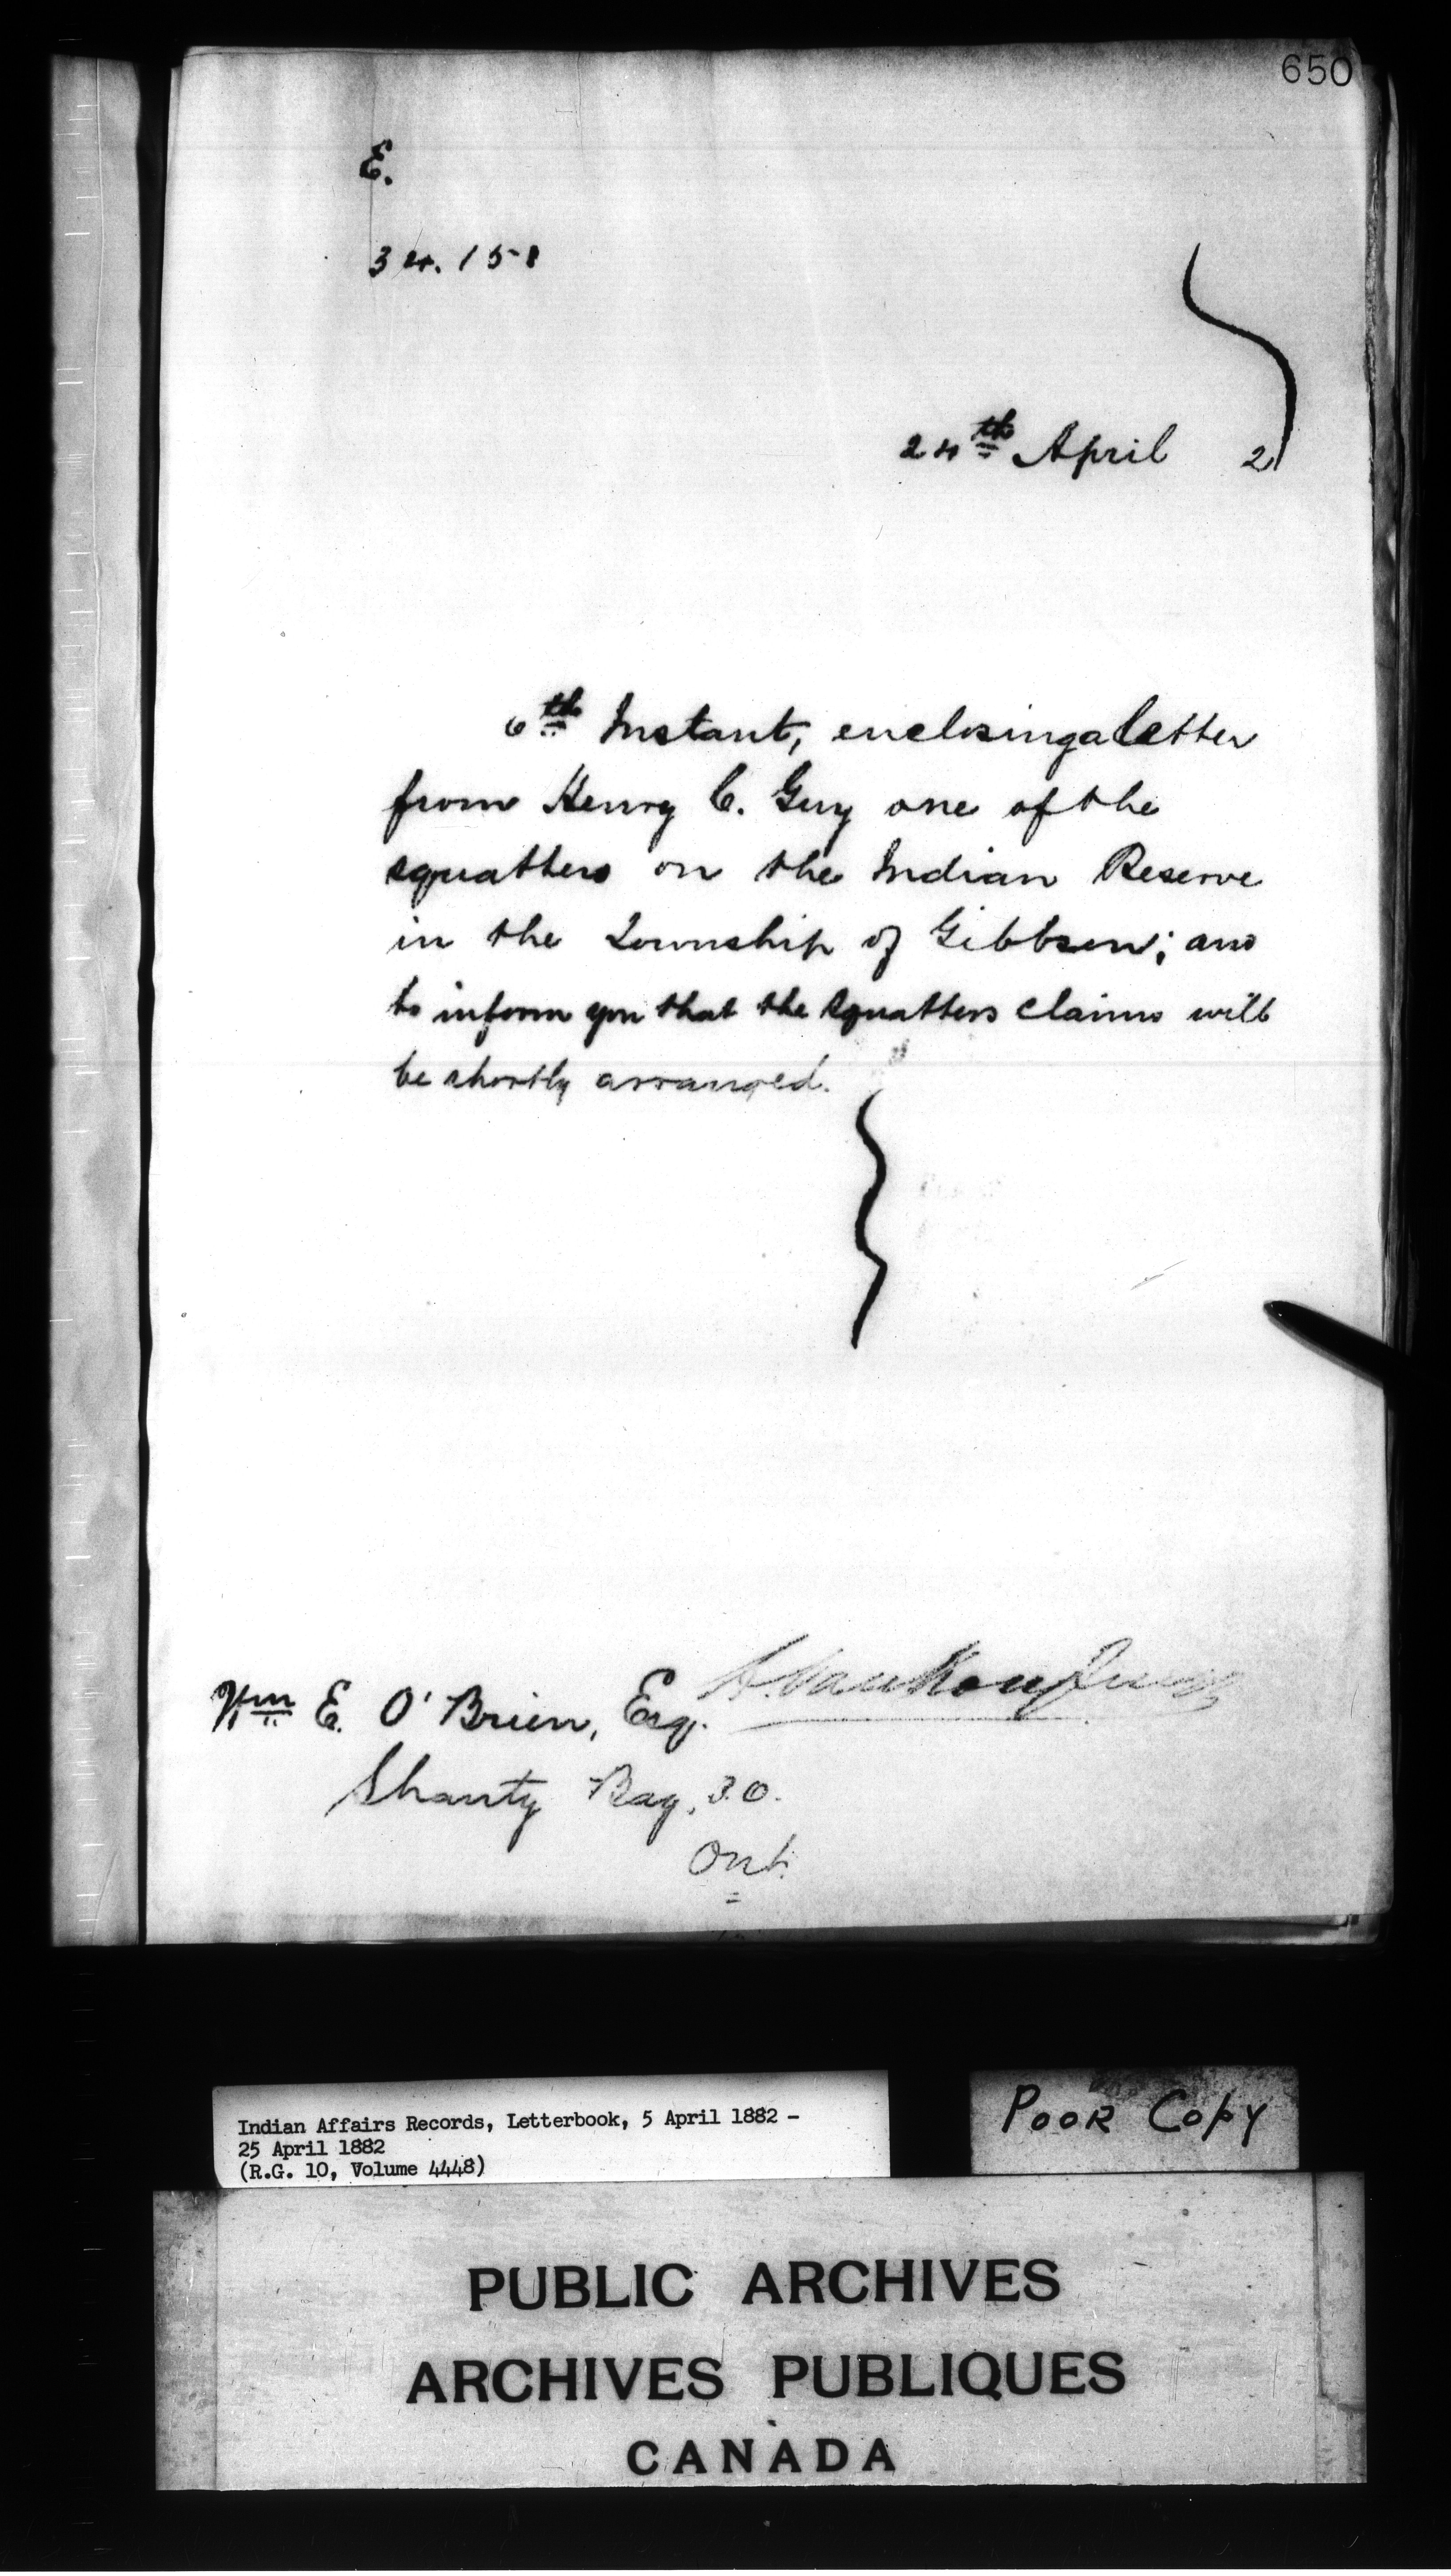 650
E.
34.151
24th April 2
6th Instant, enclosing a letter
from Henry C. Guy one of the
squatters on the Indian Reserve
in the Township of Gibbson; and
to inform you that the squatters claims will
be shortly arranged.
L. Vankoughnet
Wm E. O'Brien, Esq.
Shanty Bay, P.O.
Ont.
Indian Affairs Records, Letterbook, 5 April 1882 -
25 April 1882
(R.G. 10, Volume 4448)
POOR COPY
PUBLIC ARCHIVES
ARCHIVES PUBLIQUES
CANADA